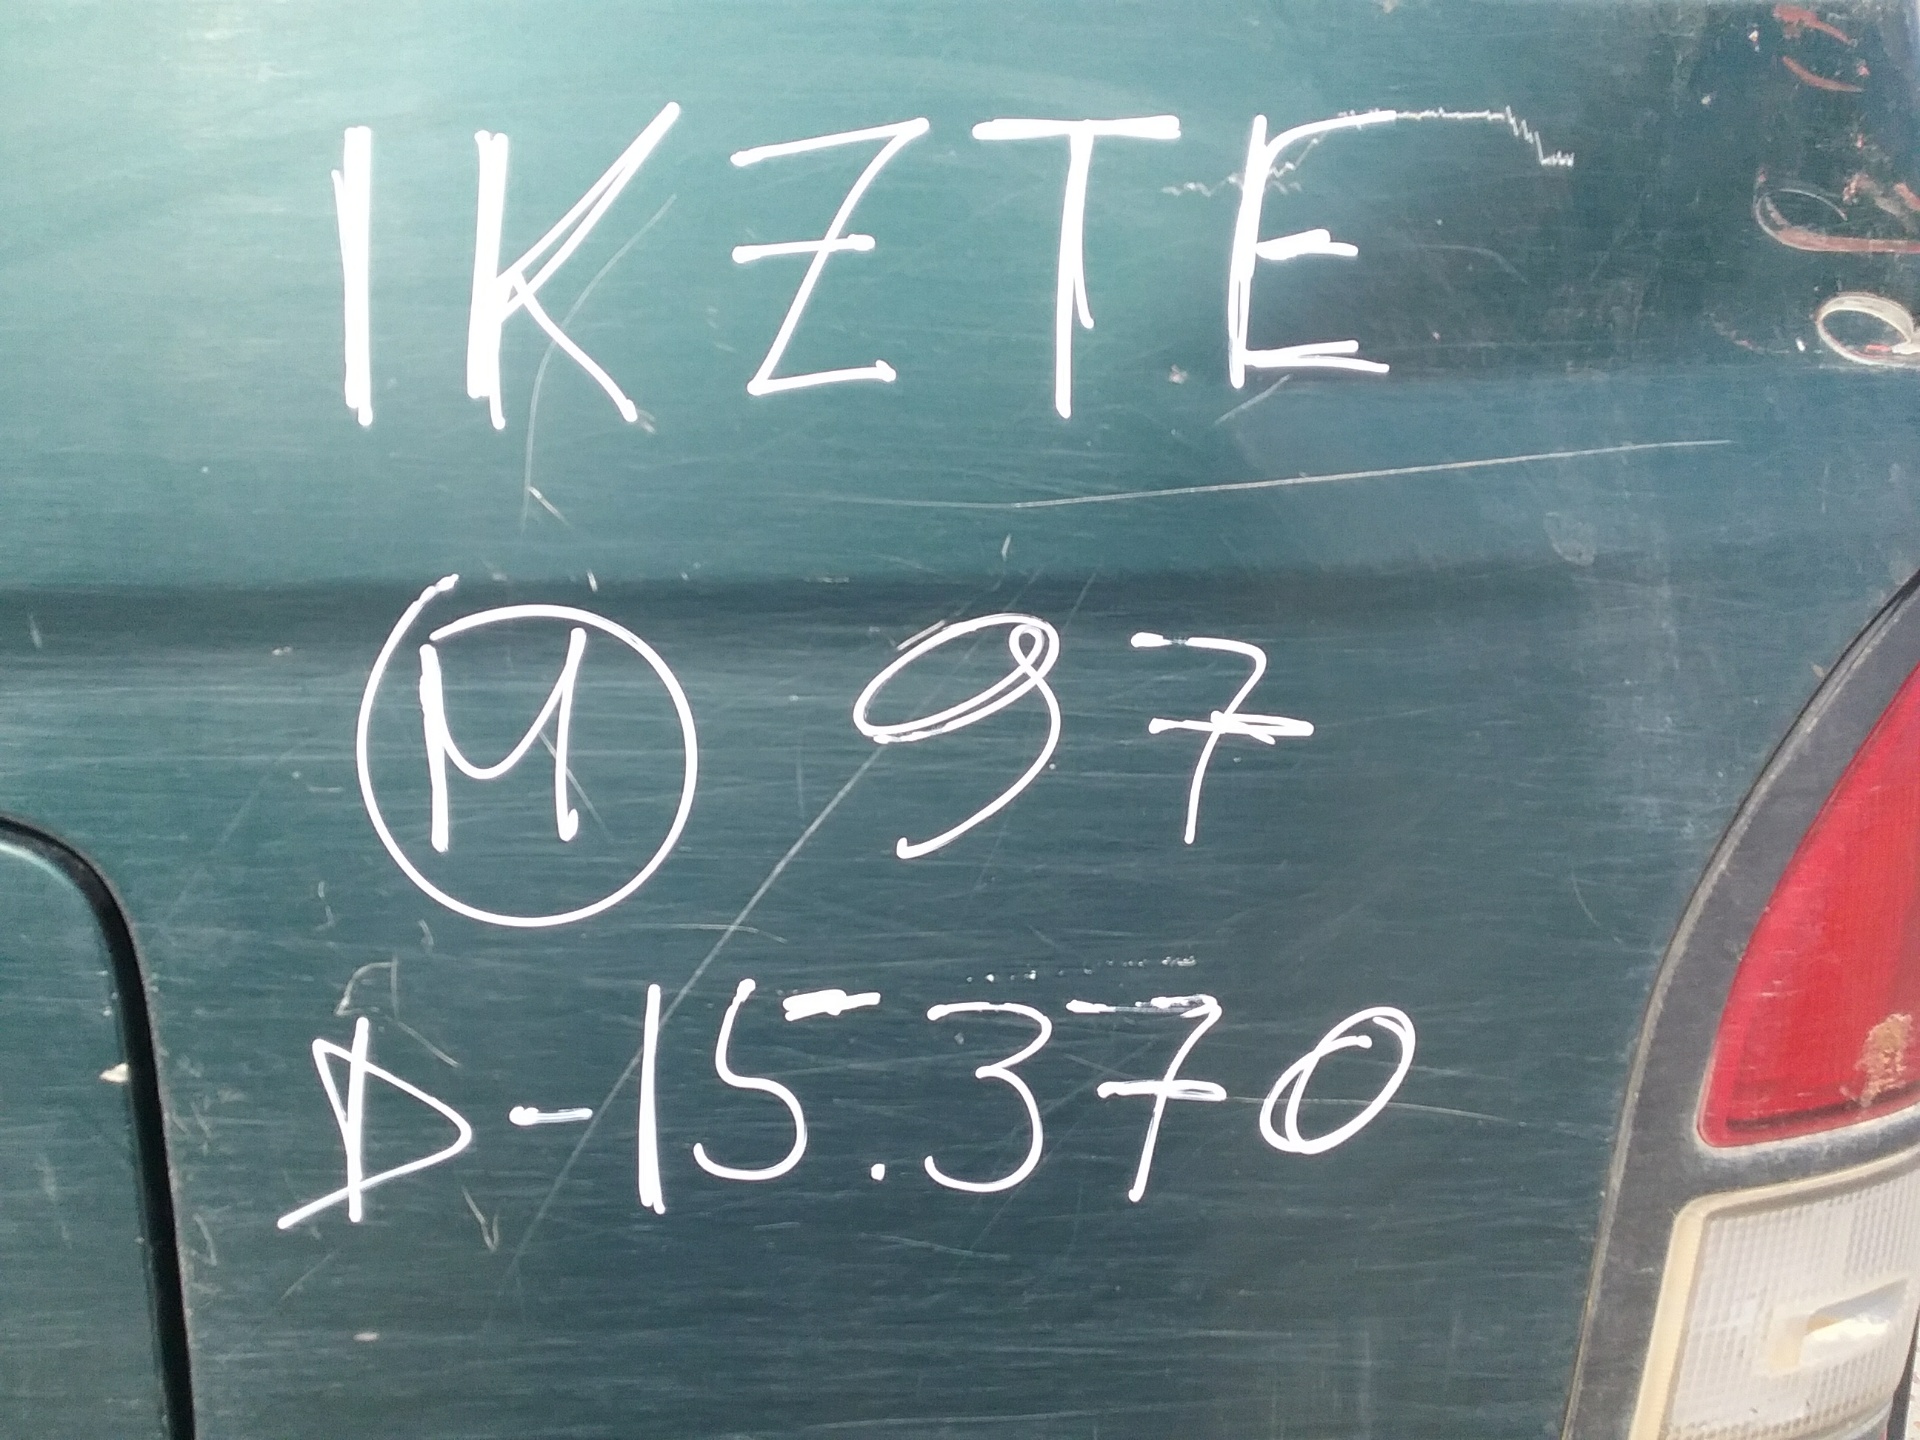 1KZTE
M 97
D-15.370